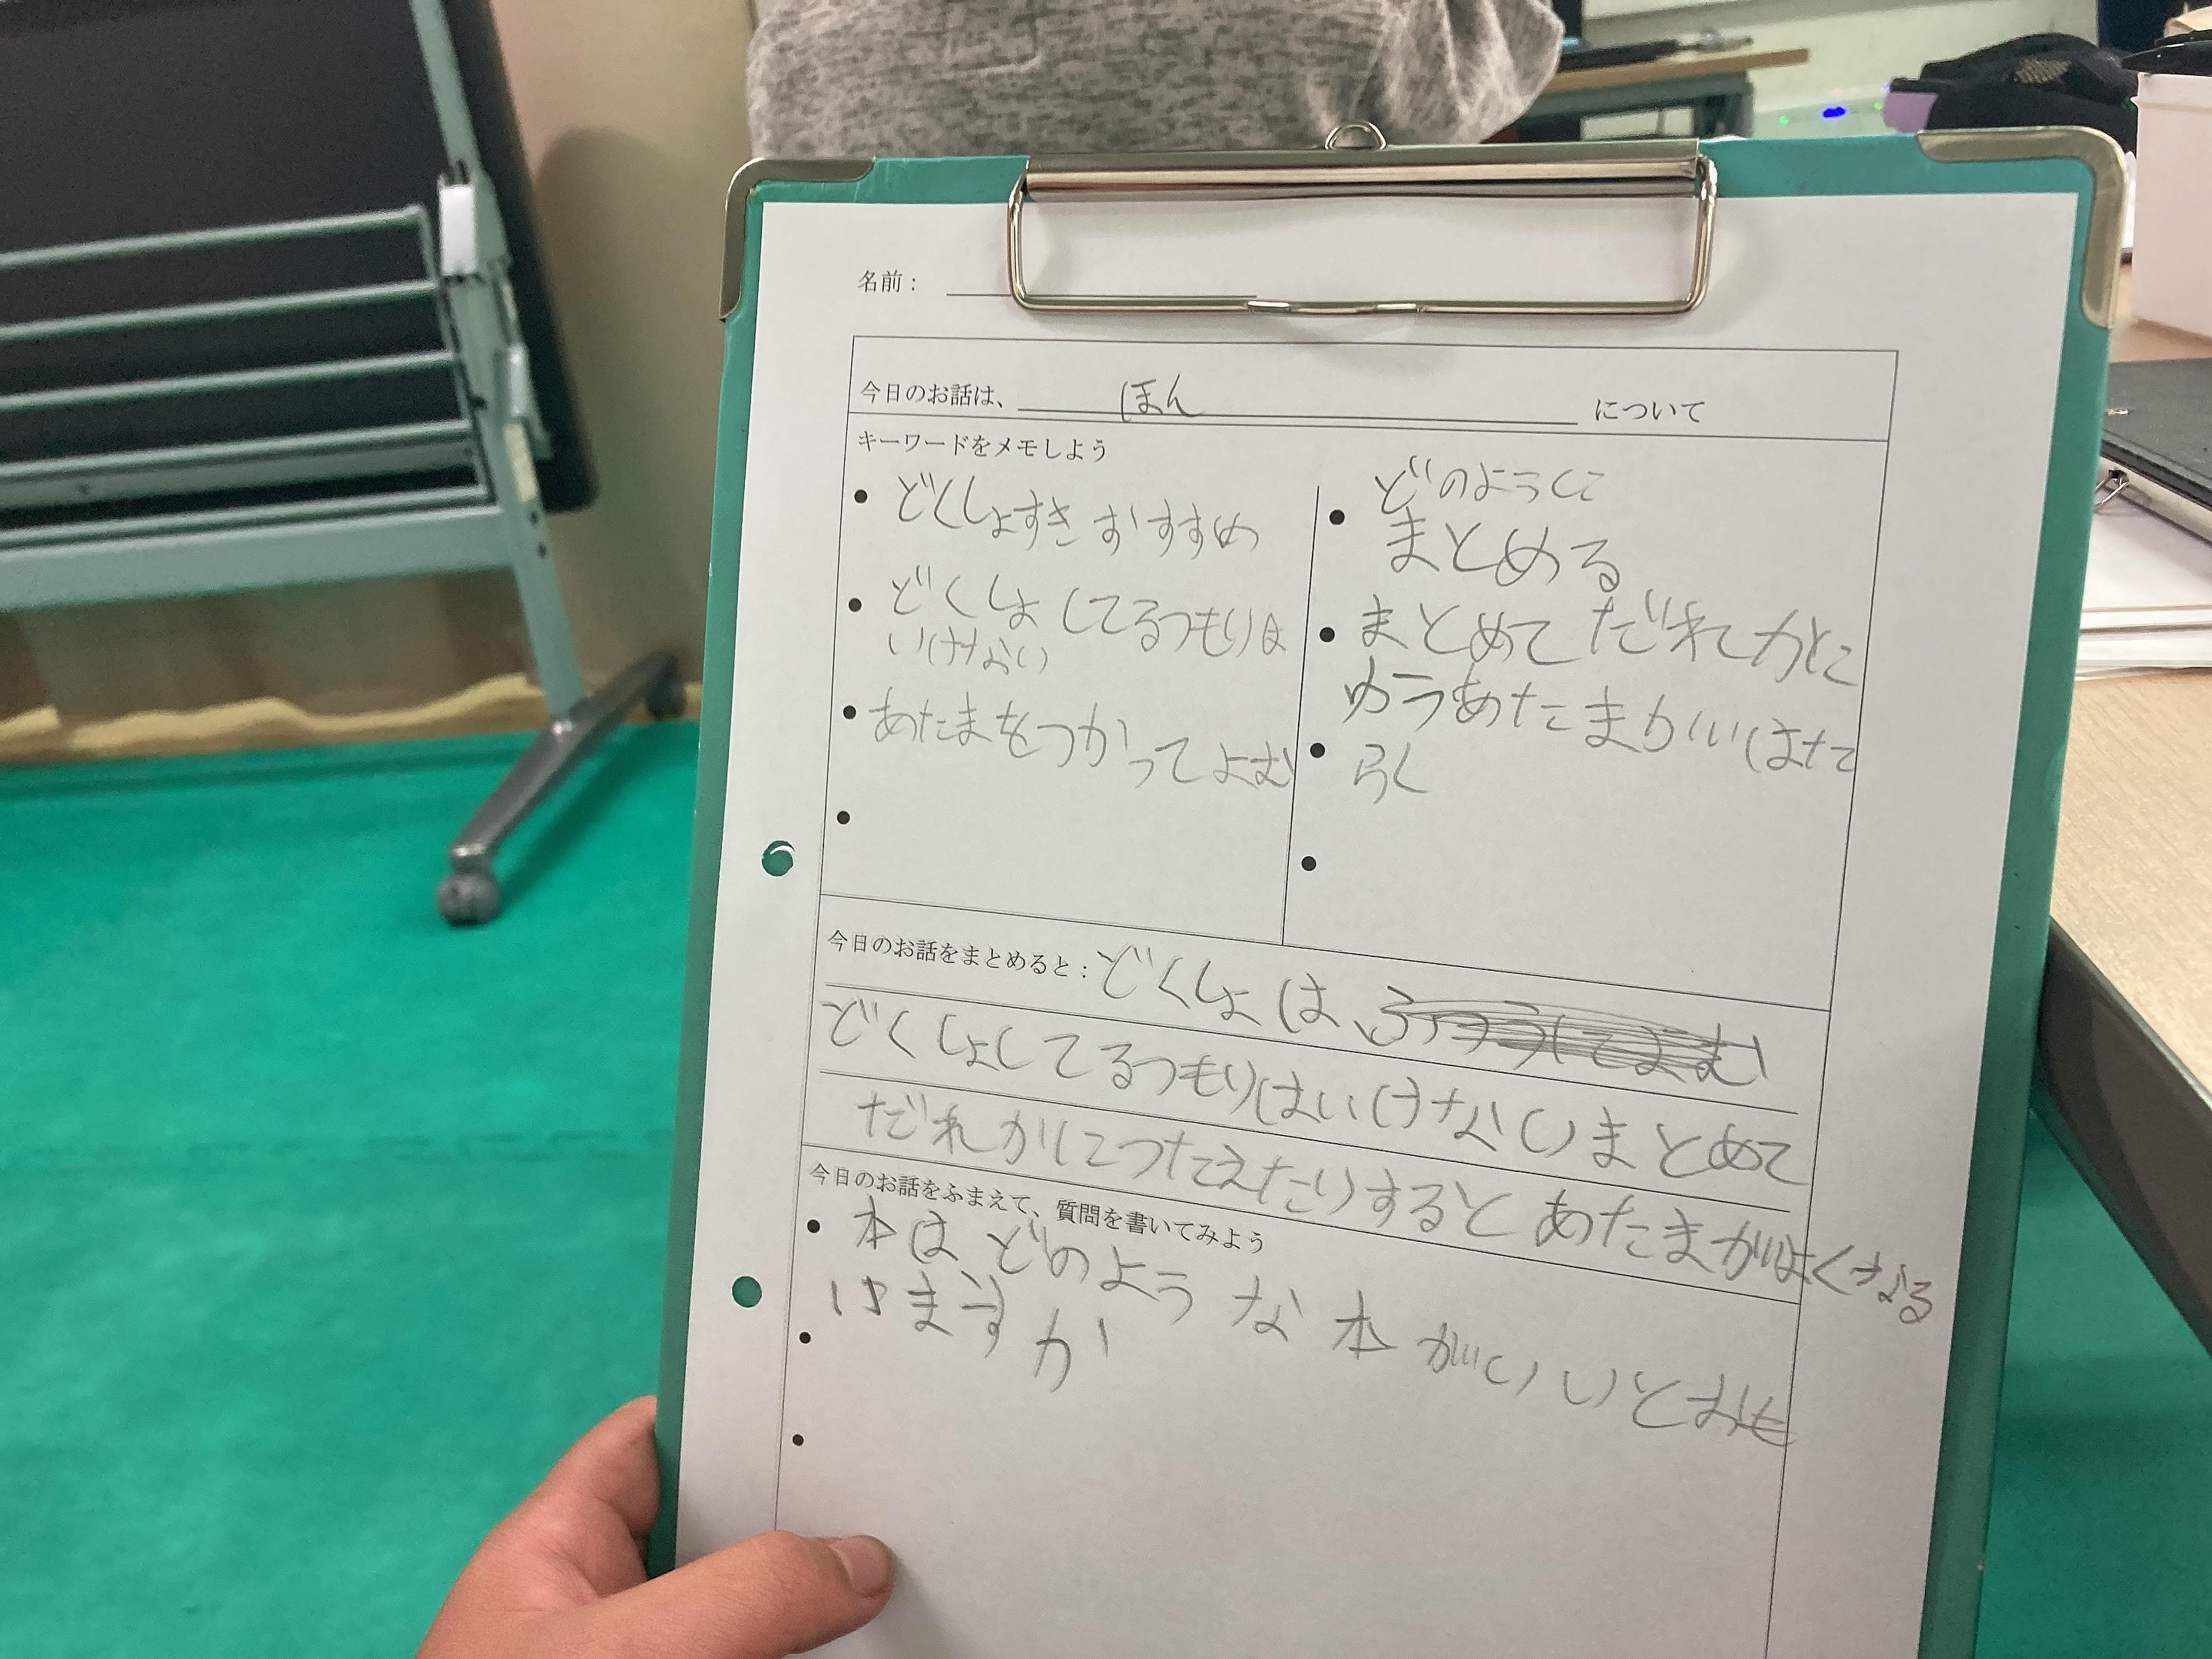 名前：
今日のお話は、 ほん について
キーワードをメモしよう
• どくしょすき おすすめ
• どくしょしてるつもりは
いけない
• あたまをつかってよむ
•
どのように
• まとめる
• まとめて だれかに
ゆうあたまかいいはたて
• らく
•
今日のお話をまとめると：どくしょは、
どくしょしてるつもりはいけないまとめて
だれかにつたえたりするとあたまがよくなる
今日のお話をふまえて、質問を書いてみよう
• 本はどのような本がいいとおも
いますか
•
•